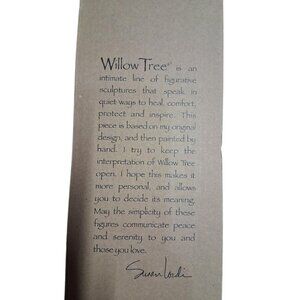 Willow Tree® is an
intimate line of figurative
sculptures that speak in
quiet ways to heal, comfort,
protect and inspire. This
piece is based on my original
design, and then painted by
hand. I try to keep the
interpretation of Willow Tree
open. I hope this makes it
more personal, and allows
you to decide its meaning.
May the simplicity of these
figures communicate peace
and serenity to you and
those you love.
Susan Lordi